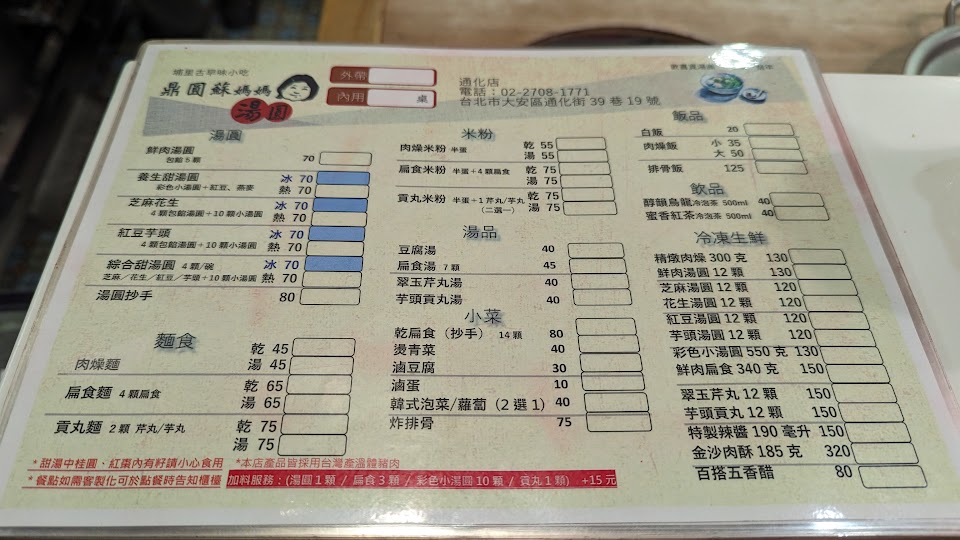 埔里古早味小吃
鼎圓蘇媽媽
湯圓
外帶
內用 桌
通化店
電話：02-2708-1771
台北市大安區通化街 39 巷 19 號
湯圓
鮮肉湯圓 70
包餡 5 顆
養生甜湯圓 冰 70
彩色小湯圓＋紅豆、燕麥 熱 70
芝麻花生 冰 70
4 顆包餡湯圓＋10 顆小湯圓 熱 70
紅豆芋頭 冰 70
4 顆包餡湯圓＋10 顆小湯圓 熱 70
綜合甜湯圓 4 顆/碗 冰 70
芝麻／花生／紅豆／芋頭＋10 顆小湯圓 熱 70
湯圓抄手 80
麵食
肉燥麵 乾 45
湯 45
扁食麵 4 顆扁食 乾 65
湯 65
貢丸麵 2 顆 芹丸/芋丸 乾 75
湯 75
米粉
肉燥米粉 半蛋 乾 55
湯 55
扁食米粉 半蛋＋4 顆扁食 乾 75
湯 75
貢丸米粉 半蛋＋1 芹丸/芋丸 乾 75
（二選一） 湯 75
湯品
豆腐湯 40
扁食湯 7 顆 45
翠玉芹丸湯 40
芋頭貢丸湯 40
小菜
乾扁食（抄手） 14 顆 80
燙青菜 40
滷豆腐 30
滷蛋 10
韓式泡菜/蘿蔔（2 選 1） 40
炸排骨 75
飯品
白飯 20
肉燥飯 小 35
大 50
排骨飯 125
飲品
醇韻烏龍 冷泡茶 500ml 40
蜜香紅茶 冷泡茶 500ml 40
冷凍生鮮
精燉肉燥 300 克 130
鮮肉湯圓 12 顆 130
芝麻湯圓 12 顆 120
花生湯圓 12 顆 120
紅豆湯圓 12 顆 120
芋頭湯圓 12 顆 120
彩色小湯圓 550 克 130
鮮肉扁食 340 克 150
翠玉芹丸 12 顆 150
芋頭貢丸 12 顆 150
特製辣醬 190 毫升 150
金沙肉酥 185 克 320
百搭五香醋 80
＊甜湯中桂圓、紅棗內有籽請小心食用 ＊本店產品皆採用台灣產溫體豬肉
＊餐點如需客製化可於點餐時告知櫃檯 加料服務：(湯圓 1 顆 / 扁食 3 顆 / 彩色小湯圓 10 顆 / 貢丸 1 顆) +15 元